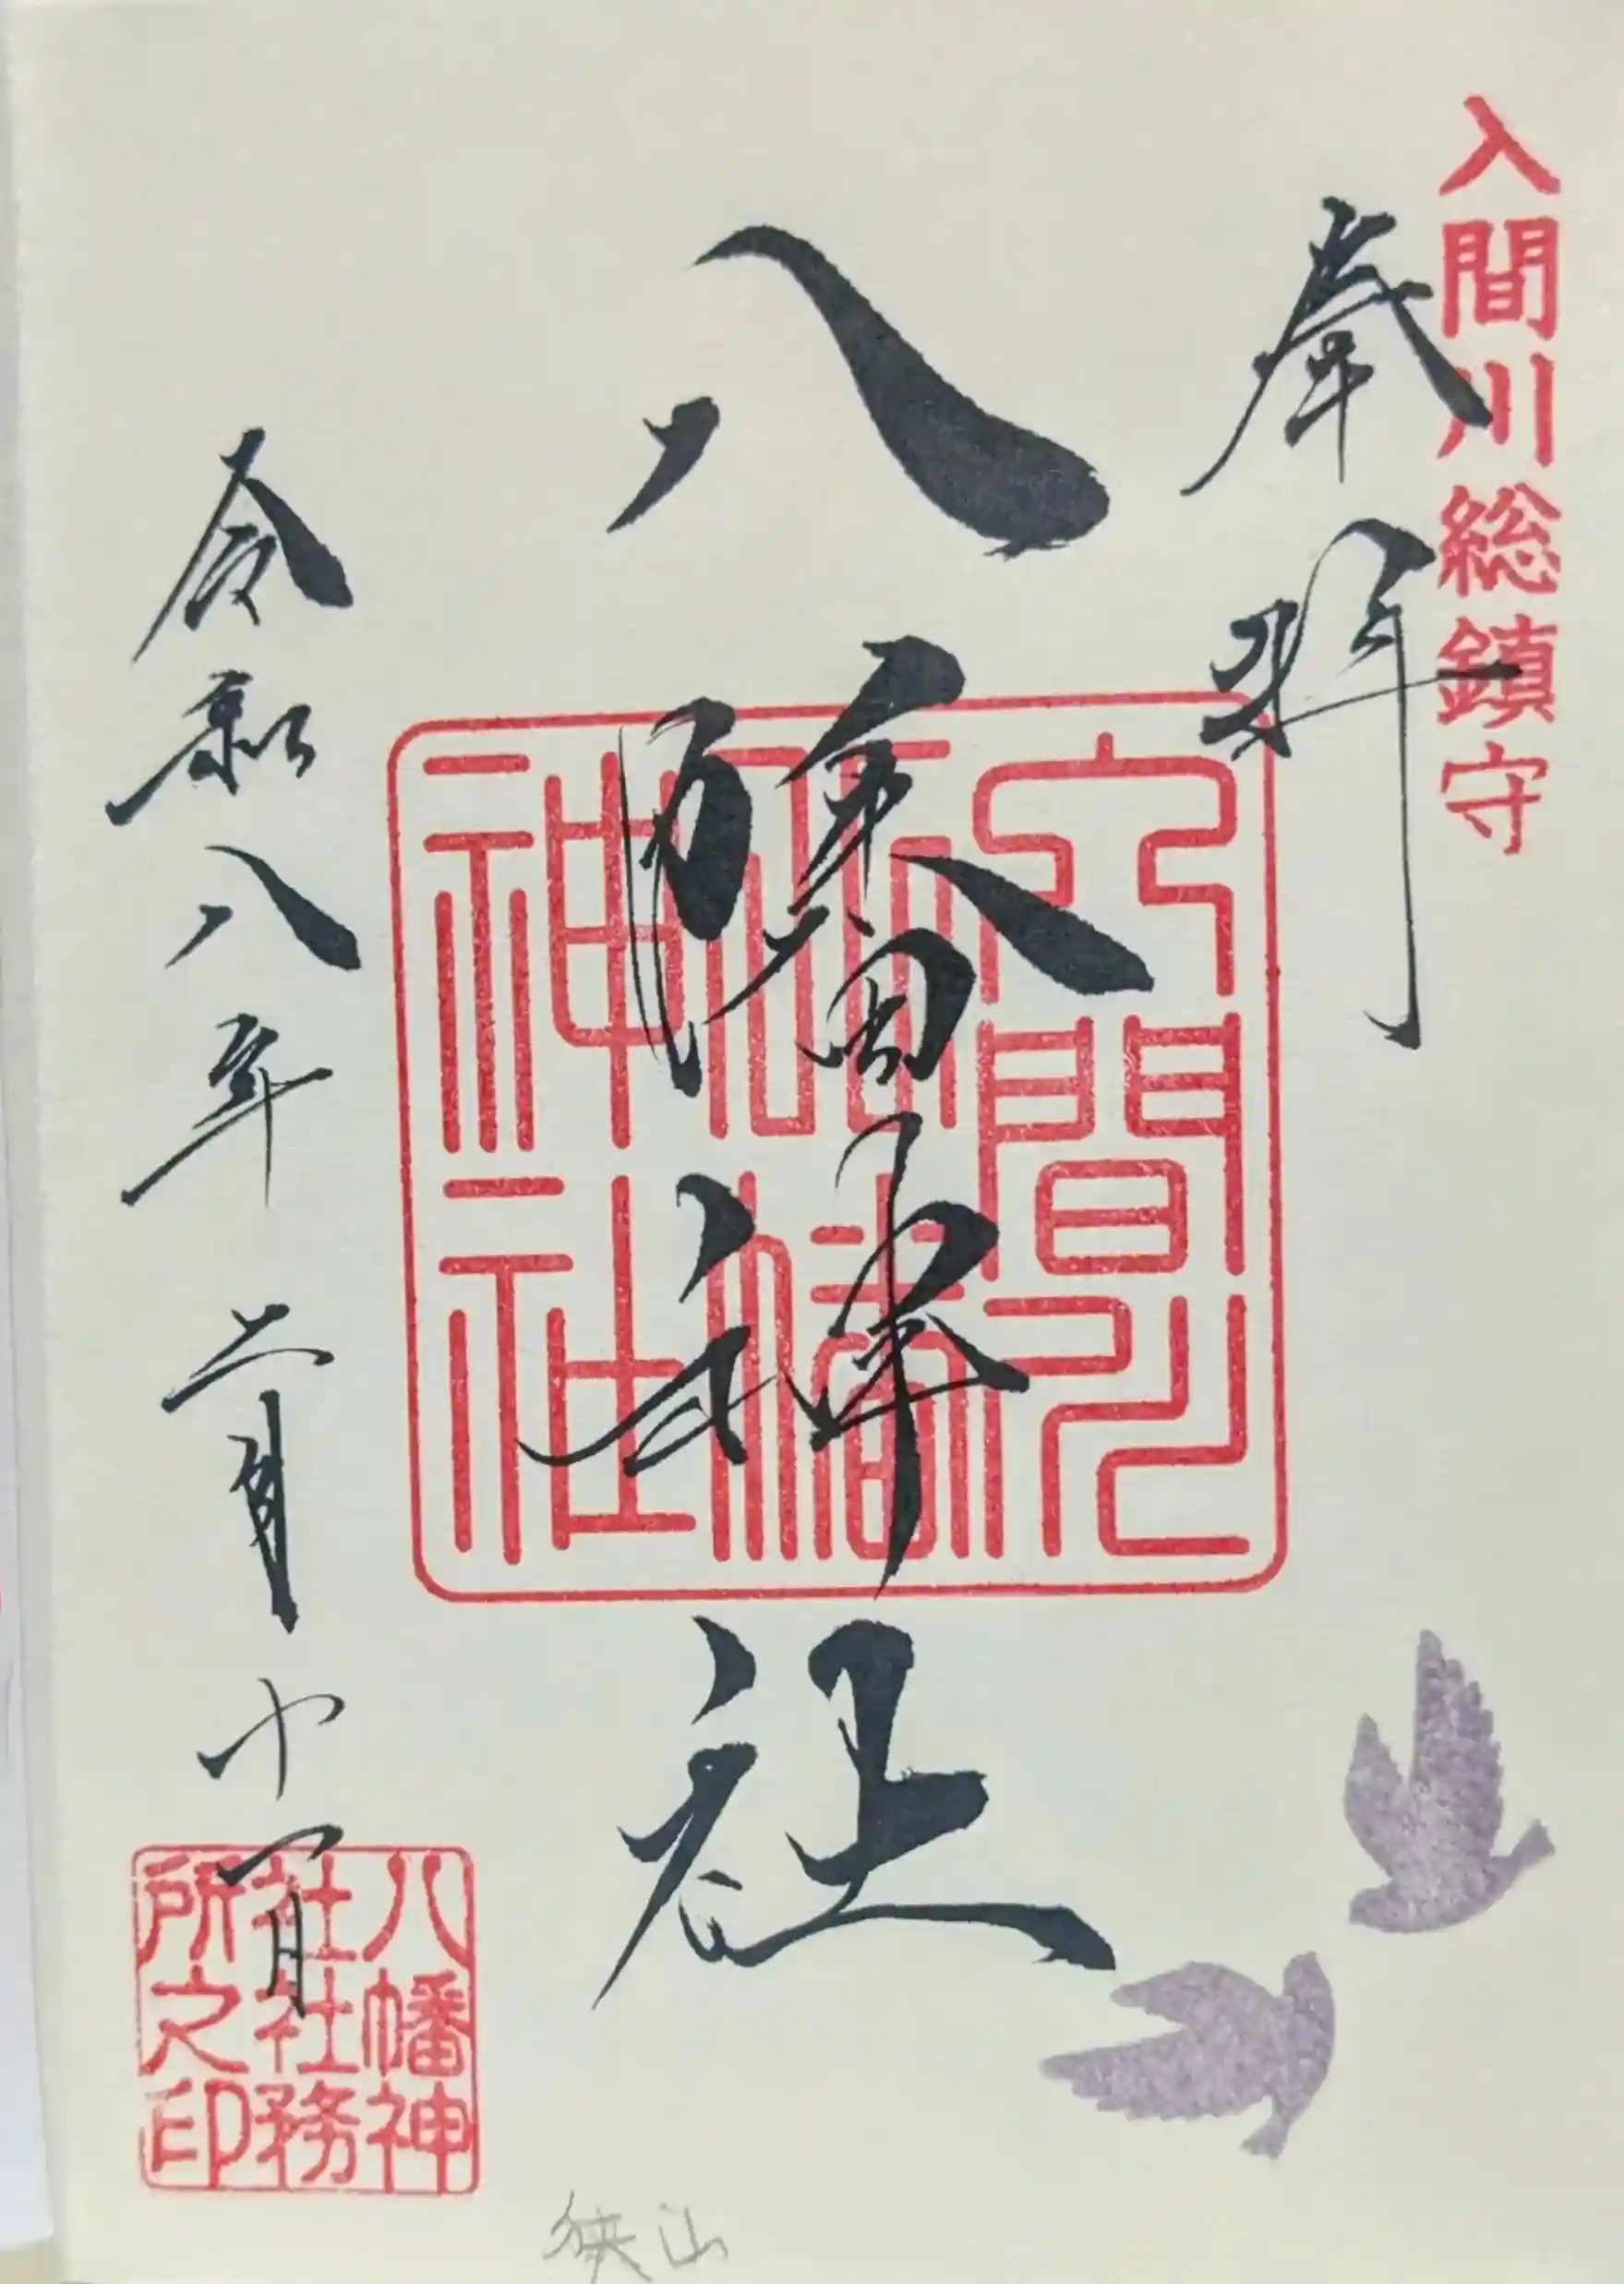 入間川総鎮守
奉拝
八幡神社
入間川
八幡
神社
令和八年二月十一日
八幡神
社社務
所之印
狭山